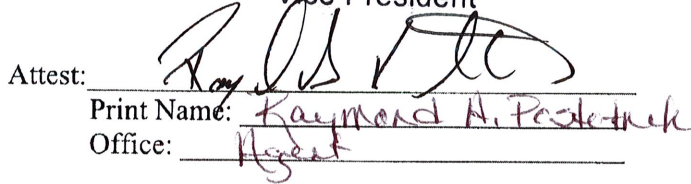 Vice President
Attest:
Print Name: Raymond A.
Office: Agent